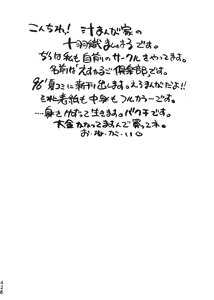 こんちわ! 汁まんが家の
十羽織ましゅまろです。
ちらは私も自前のサークルをやってます。
名前が「えすかるご倶楽部」です。
96'夏コミに新刊出します。えろまんがだよ!!
それも表紙も中身もフルカラーです。
....身をけずって生きます。バクチです。
大金かかってますんで買ってネ。
お・ね・が・い○
426